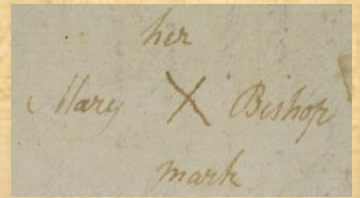 her
Mary X Bishop
mark